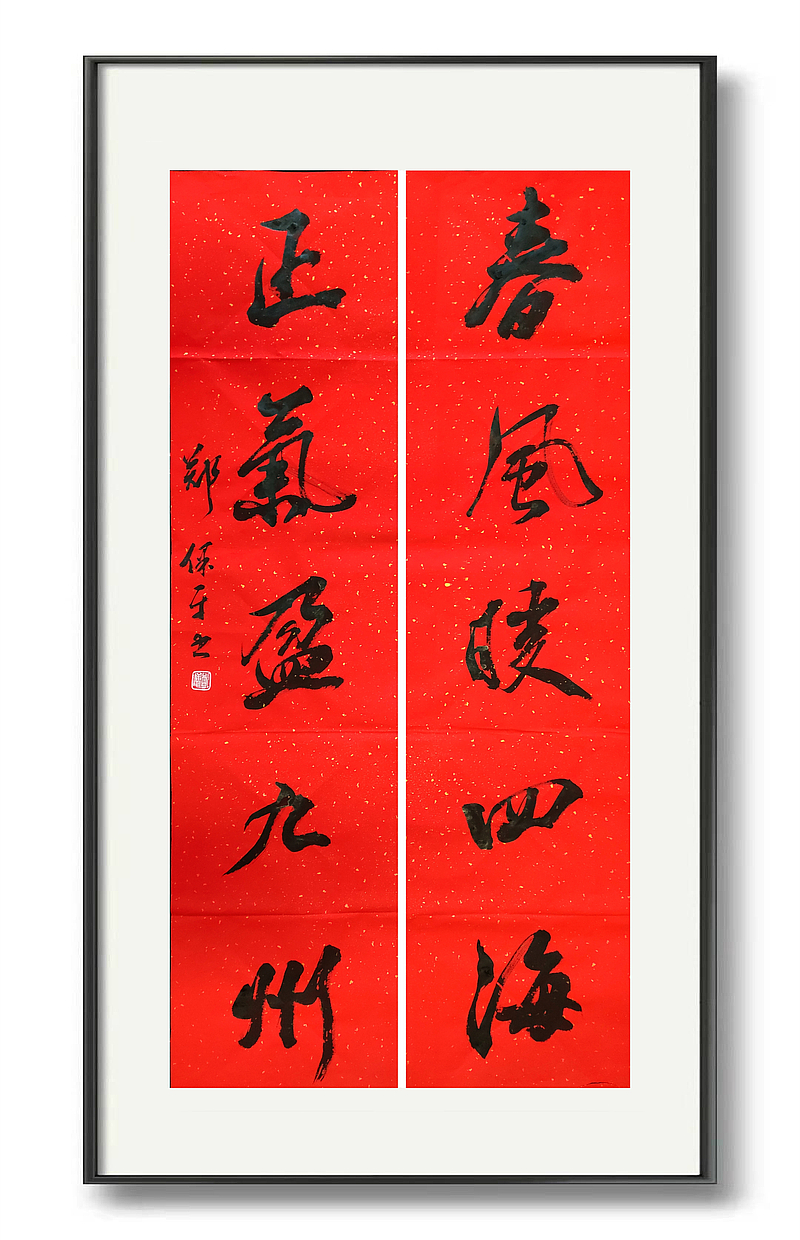 春風暖四海
正氣盈九州
郑保平书